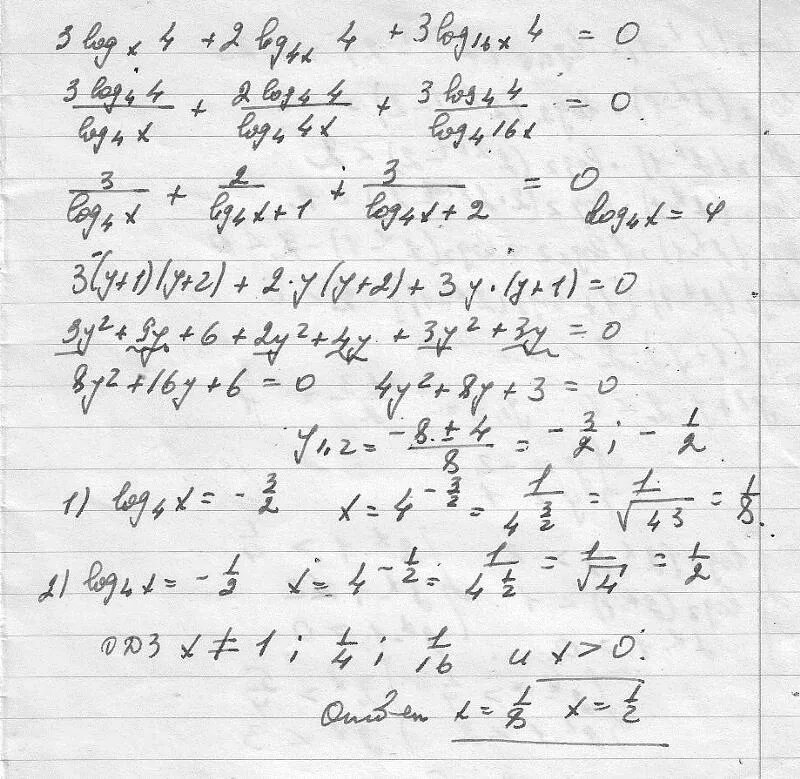 3 log_x 4 + 2 log_4x 4 + 3 log_16x 4 = 0
3 log_4 4 / log_4 x + 2 log_4 4 / log_4 4x + 3 log_4 4 / log_4 16x = 0
3 / log_4 x + 2 / log_4 x + 1 + 3 / log_4 x + 2 = 0 log_4 x = y
3(y+1)(y+2) + 2·y(y+2) + 3y·(y+1) = 0
3y² + 9y + 6 + 2y² + 4y + 3y² + 3y = 0
8y² + 16y + 6 = 0 4y² + 8y + 3 = 0
y1,2 = -8 ± 4 / 8 = - 3/2 ; - 1/2
1) log_4 x = - 3/2 x = 4^(-3/2) = 1 / 4^(3/2) = 1 / √4³ = 1/8.
2) log_4 x = - 1/2 x = 4^(-1/2) = 1 / 4^(1/2) = 1 / √4 = 1/2
ОДЗ x ≠ 1 ; 1/4 ; 1/16 и x > 0.
Ответ x = 1/8 x = 1/2